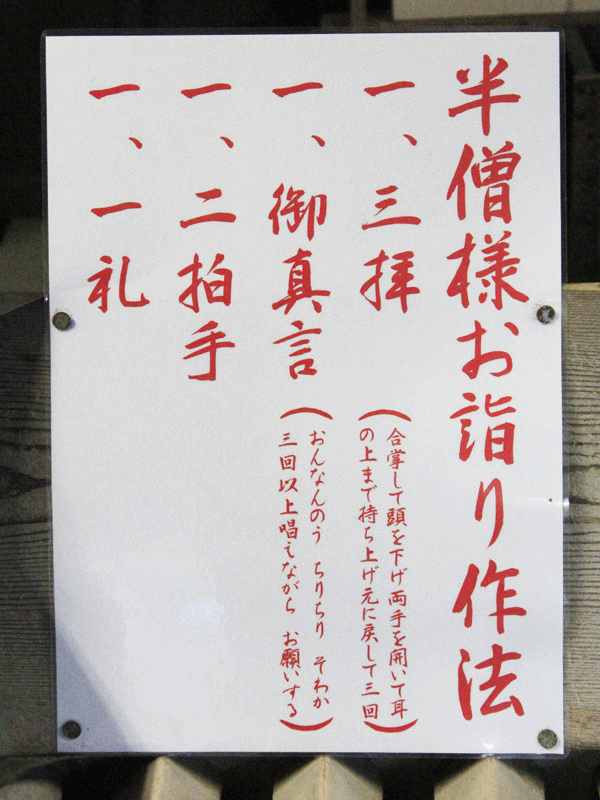 半僧様お詣り作法
一、三拝
(合掌して頭を下げ両手を開いて耳
の上まで持ち上げ元に戻して三回)
一、御真言
(おんなんのう ちりちり そわか
三回以上唱えながら お願いする)
一、二拍手
一、一礼